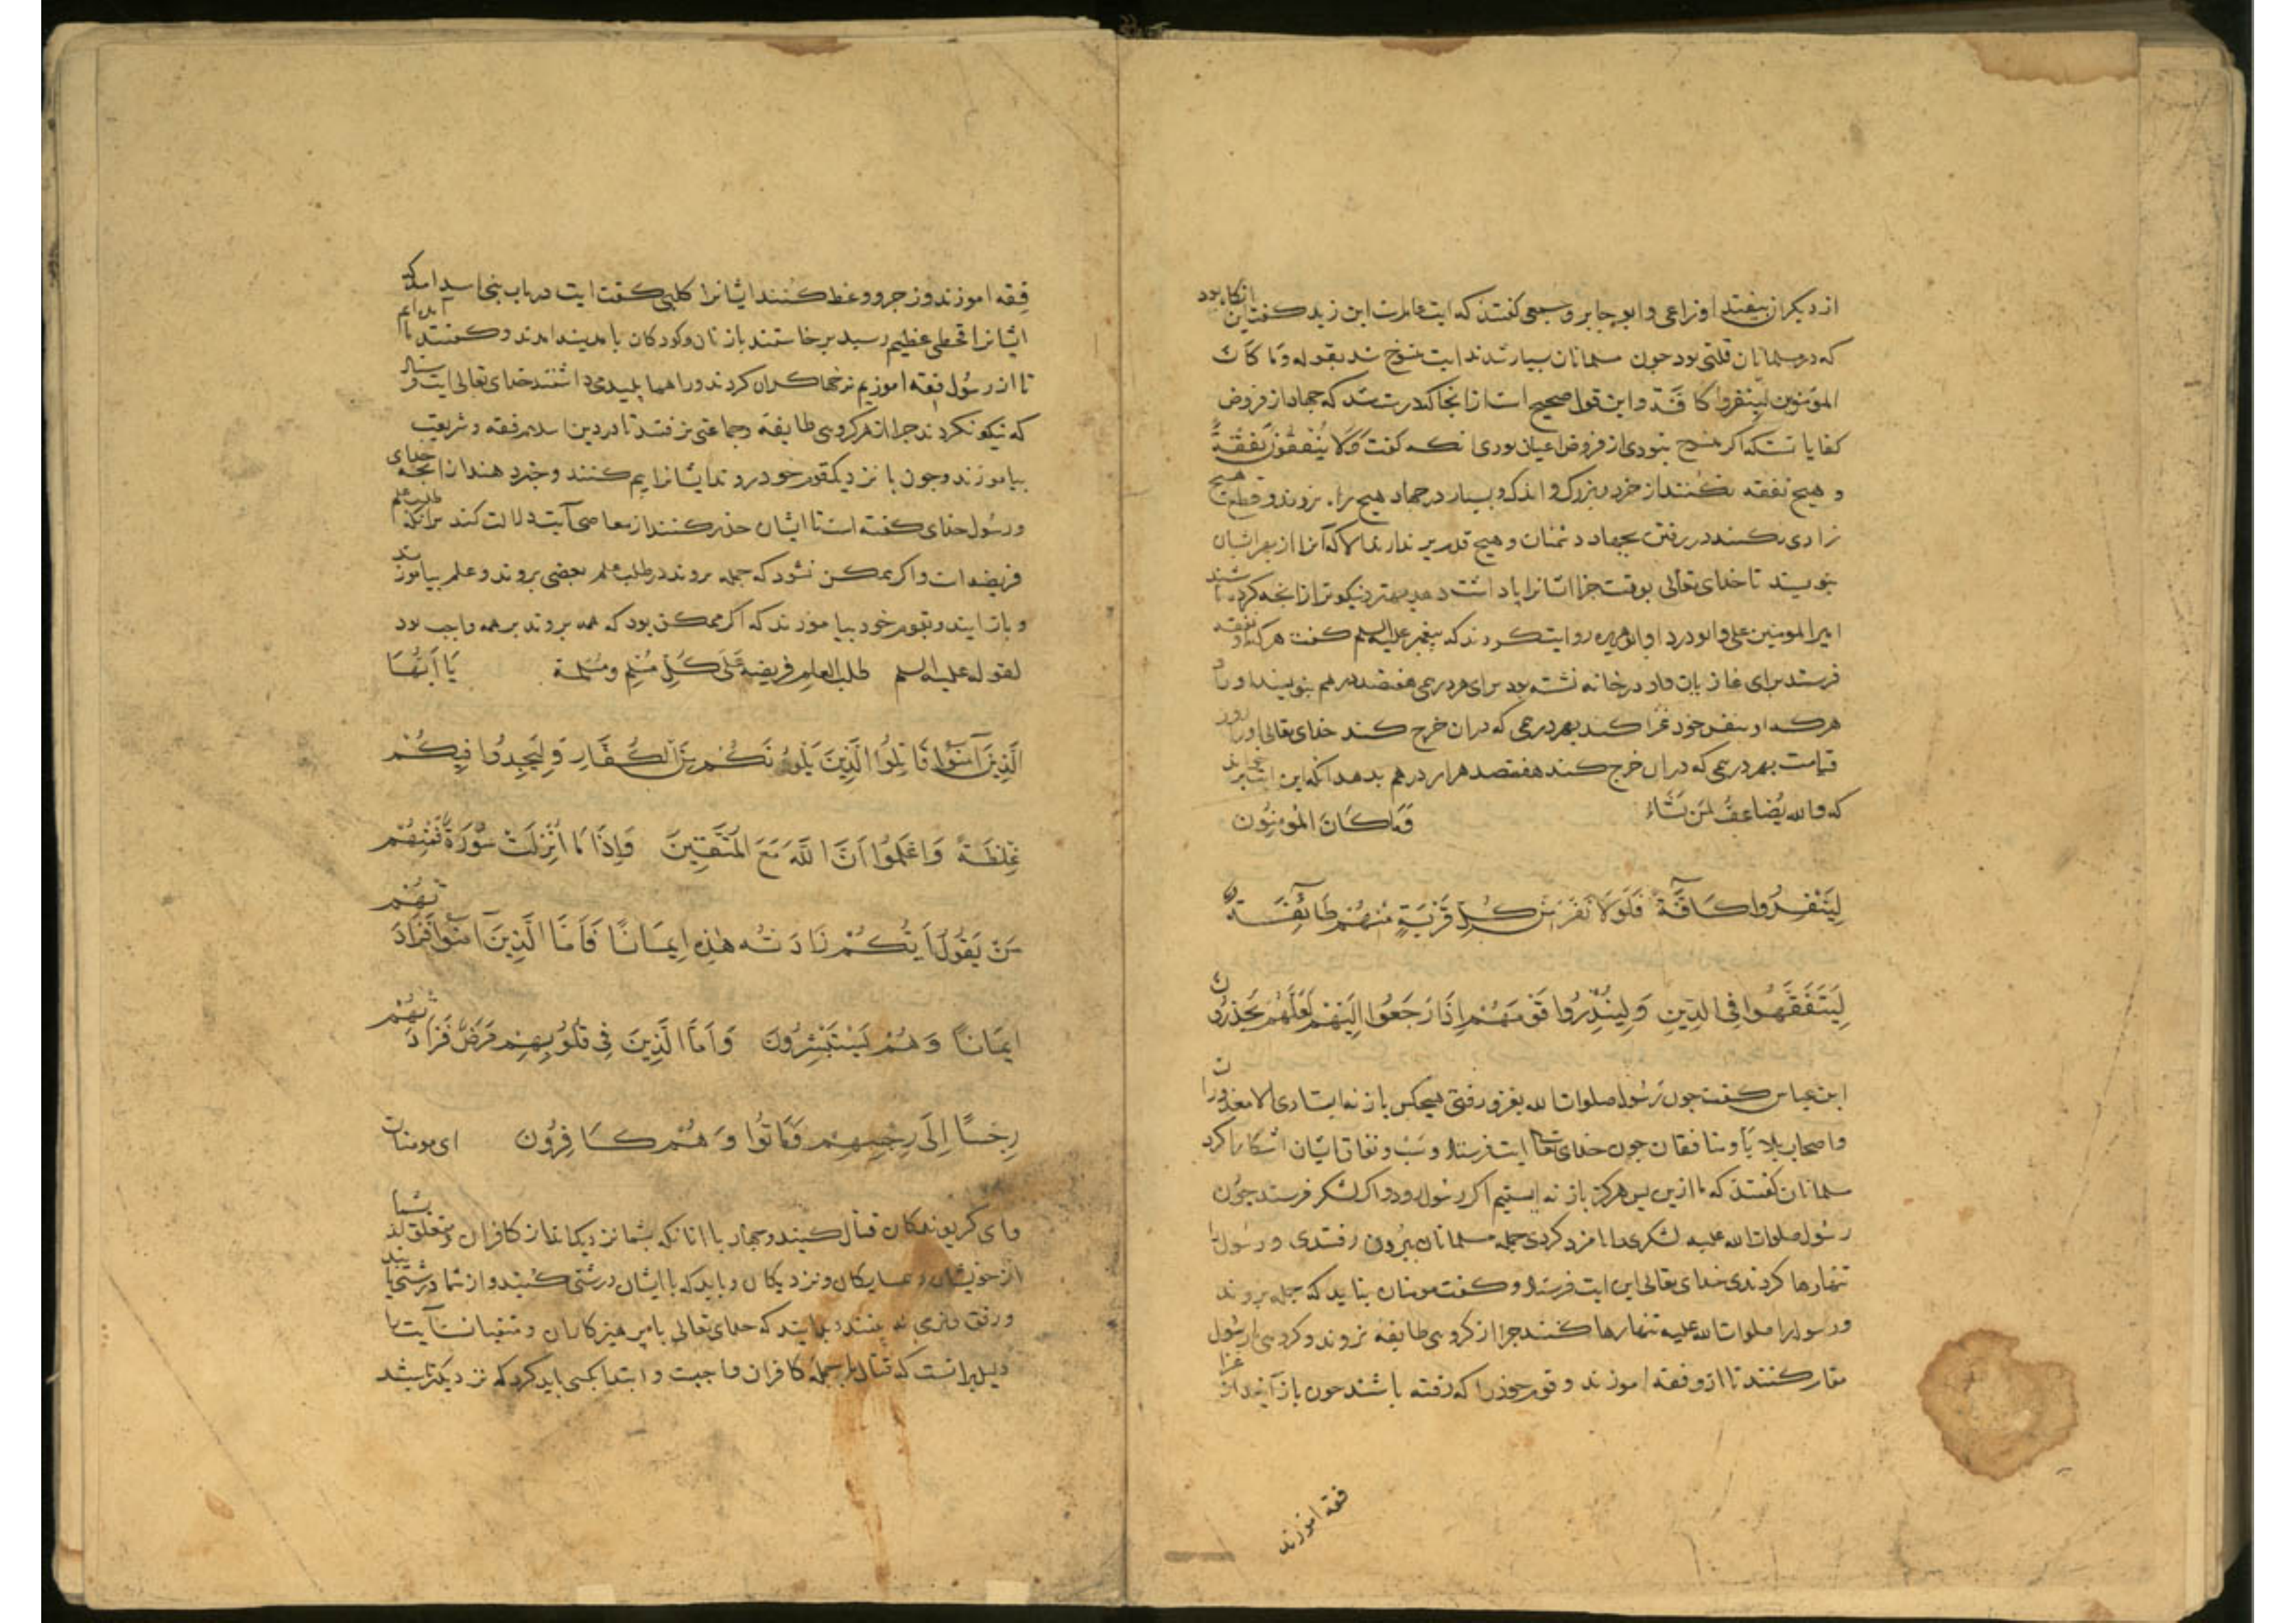 از دیکران بیفتد اوزاعی و ابو جابر و جمعی کفتند که ایت عامست ابن زید کفت این انکاه بود
که در مسلمانان قلتی بود جون مسلمانان بسیار شدند ایت منسوخ شد بقوله وَمَا کَانَ
المؤمنون لینفروا کافَّة واین قول صحیح است از انجا که درست شد که جهاد از فروض
کفایاتست که اکر منسوخ نبودی از فروض اعیان بودی انکه کفت وَلَا یُنْفِقُونَ نَفَقَةً
و هیچ نفقه نکنند از خرد و بزرک و اندک و بسیار در جهاد هیچ برا نروند و قطع هیچ
زادی نکنند در رفتن بجهاد دشمنان و هیچ تدبیر ندارند الا که آنرا از بهر ایشان
بنویسند تا خدای تعالی بوقت جزا ایشانرا پاداشت دهد بهتر و نیکوتر از انجه کرده باشند
امیر المومنین علی و ابو دردا و ابو هریره روایت کردند که پیغمبر علیه السلم کفت هر که او نفقه
فرستد برای غازیان و او در خانه نشسته بود برای هر درمی هفتصد درهم بنویسند او را
هرکه او بنفس خود غزا کند بهر درمی که دران خرج کند خدای تعالی او را روز
قیامت بهر درمی که دران خرج کند هفتصد هزار درهم بدهد انکه این ایت برخواند
که والله یُضاعِفُ لمَن یَشَاءُ وَمَا کَانَ المُؤمِنُونَ
لِیَنْفِرُوا کَافَّةً فَلَوْلَا نَفَرَ مِنْ کُلِّ فِرْقَةٍ مِنْهُمْ طَائِفَةٌ
لِیَتَفَقَّهُوا فِی الدِّینِ وَلِیُنْذِرُوا قَوْمَهُمْ اِذَا رَجَعُوا اِلَیْهِمْ لَعَلَّهُمْ یَحْذَرُونَ
ابن عباس کفت جون رَسُول صلوات الله بغزو رفتی هیجکس باز نه ایستادی الا معذوران
و اصحاب بلایا و منافقان جون خدای تعا ایت فرستاد و نفاق ایشان اشکارا کرد
مسلمانان کفتند که ما ازین پس هرکز باز نه ایستیم اکر رسول رود و اکر لشکر فرستد جون
رسول صلوات الله علیه لشکری را نامزد کردی جمله مسلمانان بیرون رفتندی و رسول را
تنها رها کردندی خدای تعالی این ایت فرستاد و کفت مومنان نباید که جمله بروند
و رسول را صلوات الله علیه تنها رها کنند جرا از کروهی طایفه نروند و کروهی با رسول
مقام کنند تا ازو فقه اموزند و قوم خود را که رفته باشند جون باز آیند از غزا
فقه اموزند
فِقه اموزند و زجر و وعظ کنند ایشانرا کلبی کفت ایت در باب بنی اسد امد که
ایشانرا قحطی عظیم رسید برخاستند با زنان و کودکان با مدینه امدند و کفتند ما آمده ایم
تا از رسول فقه اموزیم نرخها کران کردند و راهها بپلیدی داشتند خدای تعالی ایت فرستاد
که نیکو نکردند جرا از هر کروهی طایفه و جماعتی نرفتند تا در دین اسلام فقه و شریعت
بیاموزند و جون با نزدیک قوم خود روند ایشانرا بیم کنند و خبر دهند از انجه خدای
و رسول خدای کفته است تا ایشان حذر کنند از معاصی آیت دلالت کند برانکه طلب علم
فریضه است و اکر ممکن نشود که جمله بروند در طلب علم بعضی بروند و علم بیاموزند
و باز ایند و بقوم خود بیاموزند که اکر ممکن بود که همه بروند بر همه واجب بود
لقوله علیه السلم طلب العلم فریضه عَلَی کُلِّ مُسْلِم ومُسْلِمة یَا اَیُّهَا
الَّذِینَ آمَنُوا قَاتِلُوا الَّذِینَ یَلُونَکُمْ مِنَ الْکُفَّارِ وَلْیَجِدُوا فِیکُمْ
غِلْظَةً وَاعْلَمُوا اَنَّ اللَّهَ مَعَ الْمُتَّقِینَ وَاِذَا مَا اُنْزِلَتْ سُورَةٌ فَمِنْهُمْ
مَنْ یَقُولُ اَیُّکُمْ زَادَتْهُ هٰذِهِ اِیمَانًا فَاَمَّا الَّذِینَ آمَنُوا فَزَادَتْهُمْ
اِیمَانًا وَهُمْ یَسْتَبْشِرُونَ وَاَمَّا الَّذِینَ فِی قُلُوبِهِمْ مَرَضٌ فَزَادَتْهُمْ
رِجْسًا اِلَی رِجْسِهِمْ وَمَاتُوا وَهُمْ کَافِرُونَ ای مومنان
و ای کرویدکان قتال کنید و جهاد با انانکه بشما نزدیک اند از کافران و متعلق اند بشما
از خویشان و همسایکان و نزدیکان و باید که با ایشان درشتی کنید و از شما درشتی یابند
و رفق و نرمی نه بینند و بدانید که خدای تعالی با پرهیزکاران و متقیانست آیت
دلیل برانست که قتال با جمله کافران واجبست و ابتدا بکسی باید کرد که نزدیکتر باشد